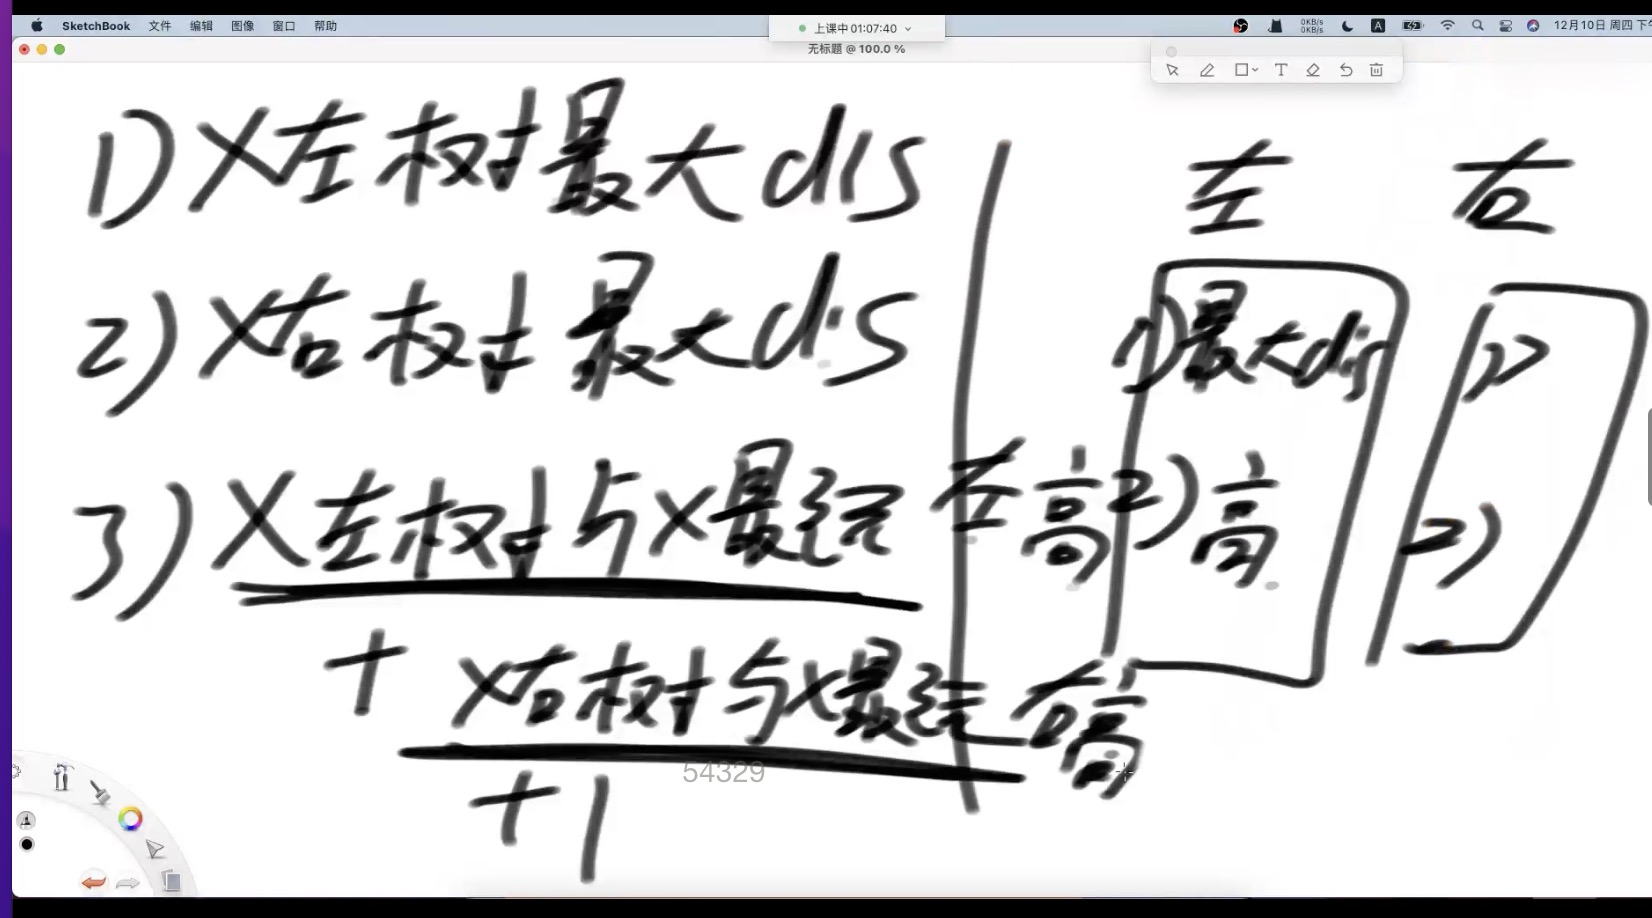 SketchBook 文件 编辑 图像 窗口 帮助
上课中 01:07:40
0KB/s
0KB/s
A
12月10日 周四 下
无标题 @ 100.0 %
T
1) X左树最大dis
2) X右树最大dis
3) X左树与X最远 左高
+ X右树与X最远 右高
+1
左 右
1) 最大dis 1)
2) 高 2)
54329